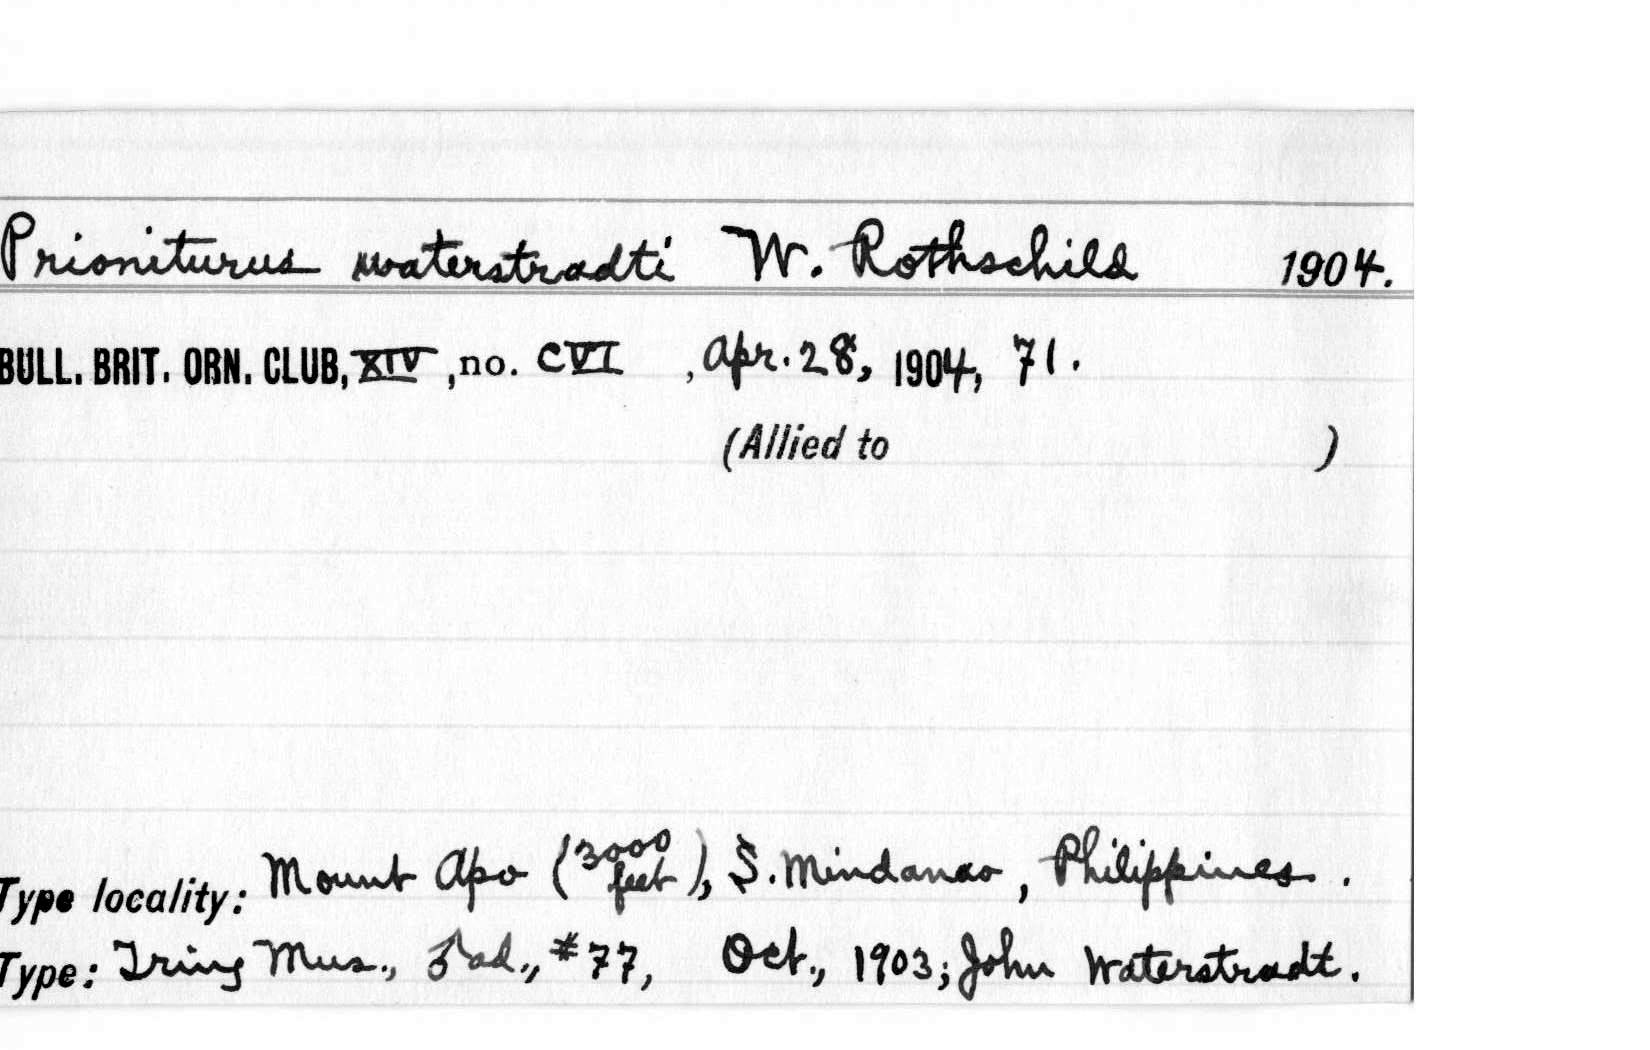 Prioniturus waterstradti W. Rothschild 1904.
BULL. BRIT. ORN. CLUB, XIV, no. CVI, Apr. 28, 1904, 71.
(Allied to )
Type locality: Mount Apo (3000 feet), S. Mindanao, Philippines.
Type: Tring Mus., ♂ ad., #77, Oct., 1903; John Waterstradt.